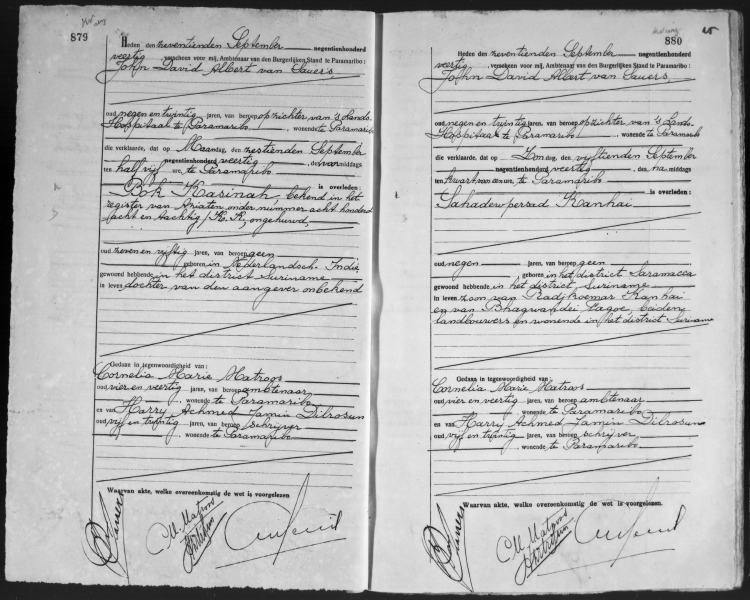 879
Heden den zeventienden September negentienhonderd
veertig, verscheen voor mij, Ambtenaar van den Burgerlijken Stand te Paramaribo:
John David Albert van Sauers,
oud negen en twintig jaren, van beroep opzichter van 's Lands
Hospitaal te Paramaribo, wonende te Paramaribo
die verklaarde, dat op Maandag, den zestienden September
negentienhonderd veertig, des voormiddags
ten half vijf ure, te Paramaribo
is overleden:
Bok Kasinah, bekend in het
register van Aziaten onder nummer acht honderd
acht en tachtig / K.K, ongehuwd,
oud zeven en vijftig jaren, van beroep geen
geboren in Nederlandsch-Indië,
gewoond hebbende in het district Suriname
in leven dochter van den aangever onbekend
Gedaan in tegenwoordigheid van:
Cornelia Marie Matroos
oud vier en veertig jaren, van beroep ambtenaar
, wonende te Paramaribo
en van Harry Achmed Jamin Dilrosun
oud vijf en twintig jaren, van beroep schrijver
wonende te Paramaribo
Waarvan akte, welke overeenkomstig de wet is voorgelezen
C M Matroos
880
Heden den zeventienden September negentienhonderd
veertig, verscheen voor mij, Ambtenaar van den Burgerlijken Stand te Paramaribo:
John David Albert van Sauers,
oud negen en twintig jaren, van beroep opzichter van 's Lands
Hospitaal te Paramaribo, wonende te Paramaribo
die verklaarde, dat op Zondag, den vijftienden September
negentienhonderd veertig, des na middags
ten kwart voor ure, te Paramaribo
is overleden:
Sahadewpersad Kanhai
oud negen jaren, van beroep geen
geboren in het district Saramacca
gewoond hebbende in het district Suriname
in leven zoon van Radjkoemar Kanhai
en van Bhagwandei, beiden
landbouwers en wonende in het district Suriname
Gedaan in tegenwoordigheid van:
Cornelia Marie Matroos
oud vier en veertig jaren, van beroep ambtenaar
, wonende te Paramaribo
en van Harry Achmed Jamin Dilrosun
oud vijf en twintig jaren, van beroep schrijver
wonende te Paramaribo
Waarvan akte, welke overeenkomstig de wet is voorgelezen.
C M Matroos